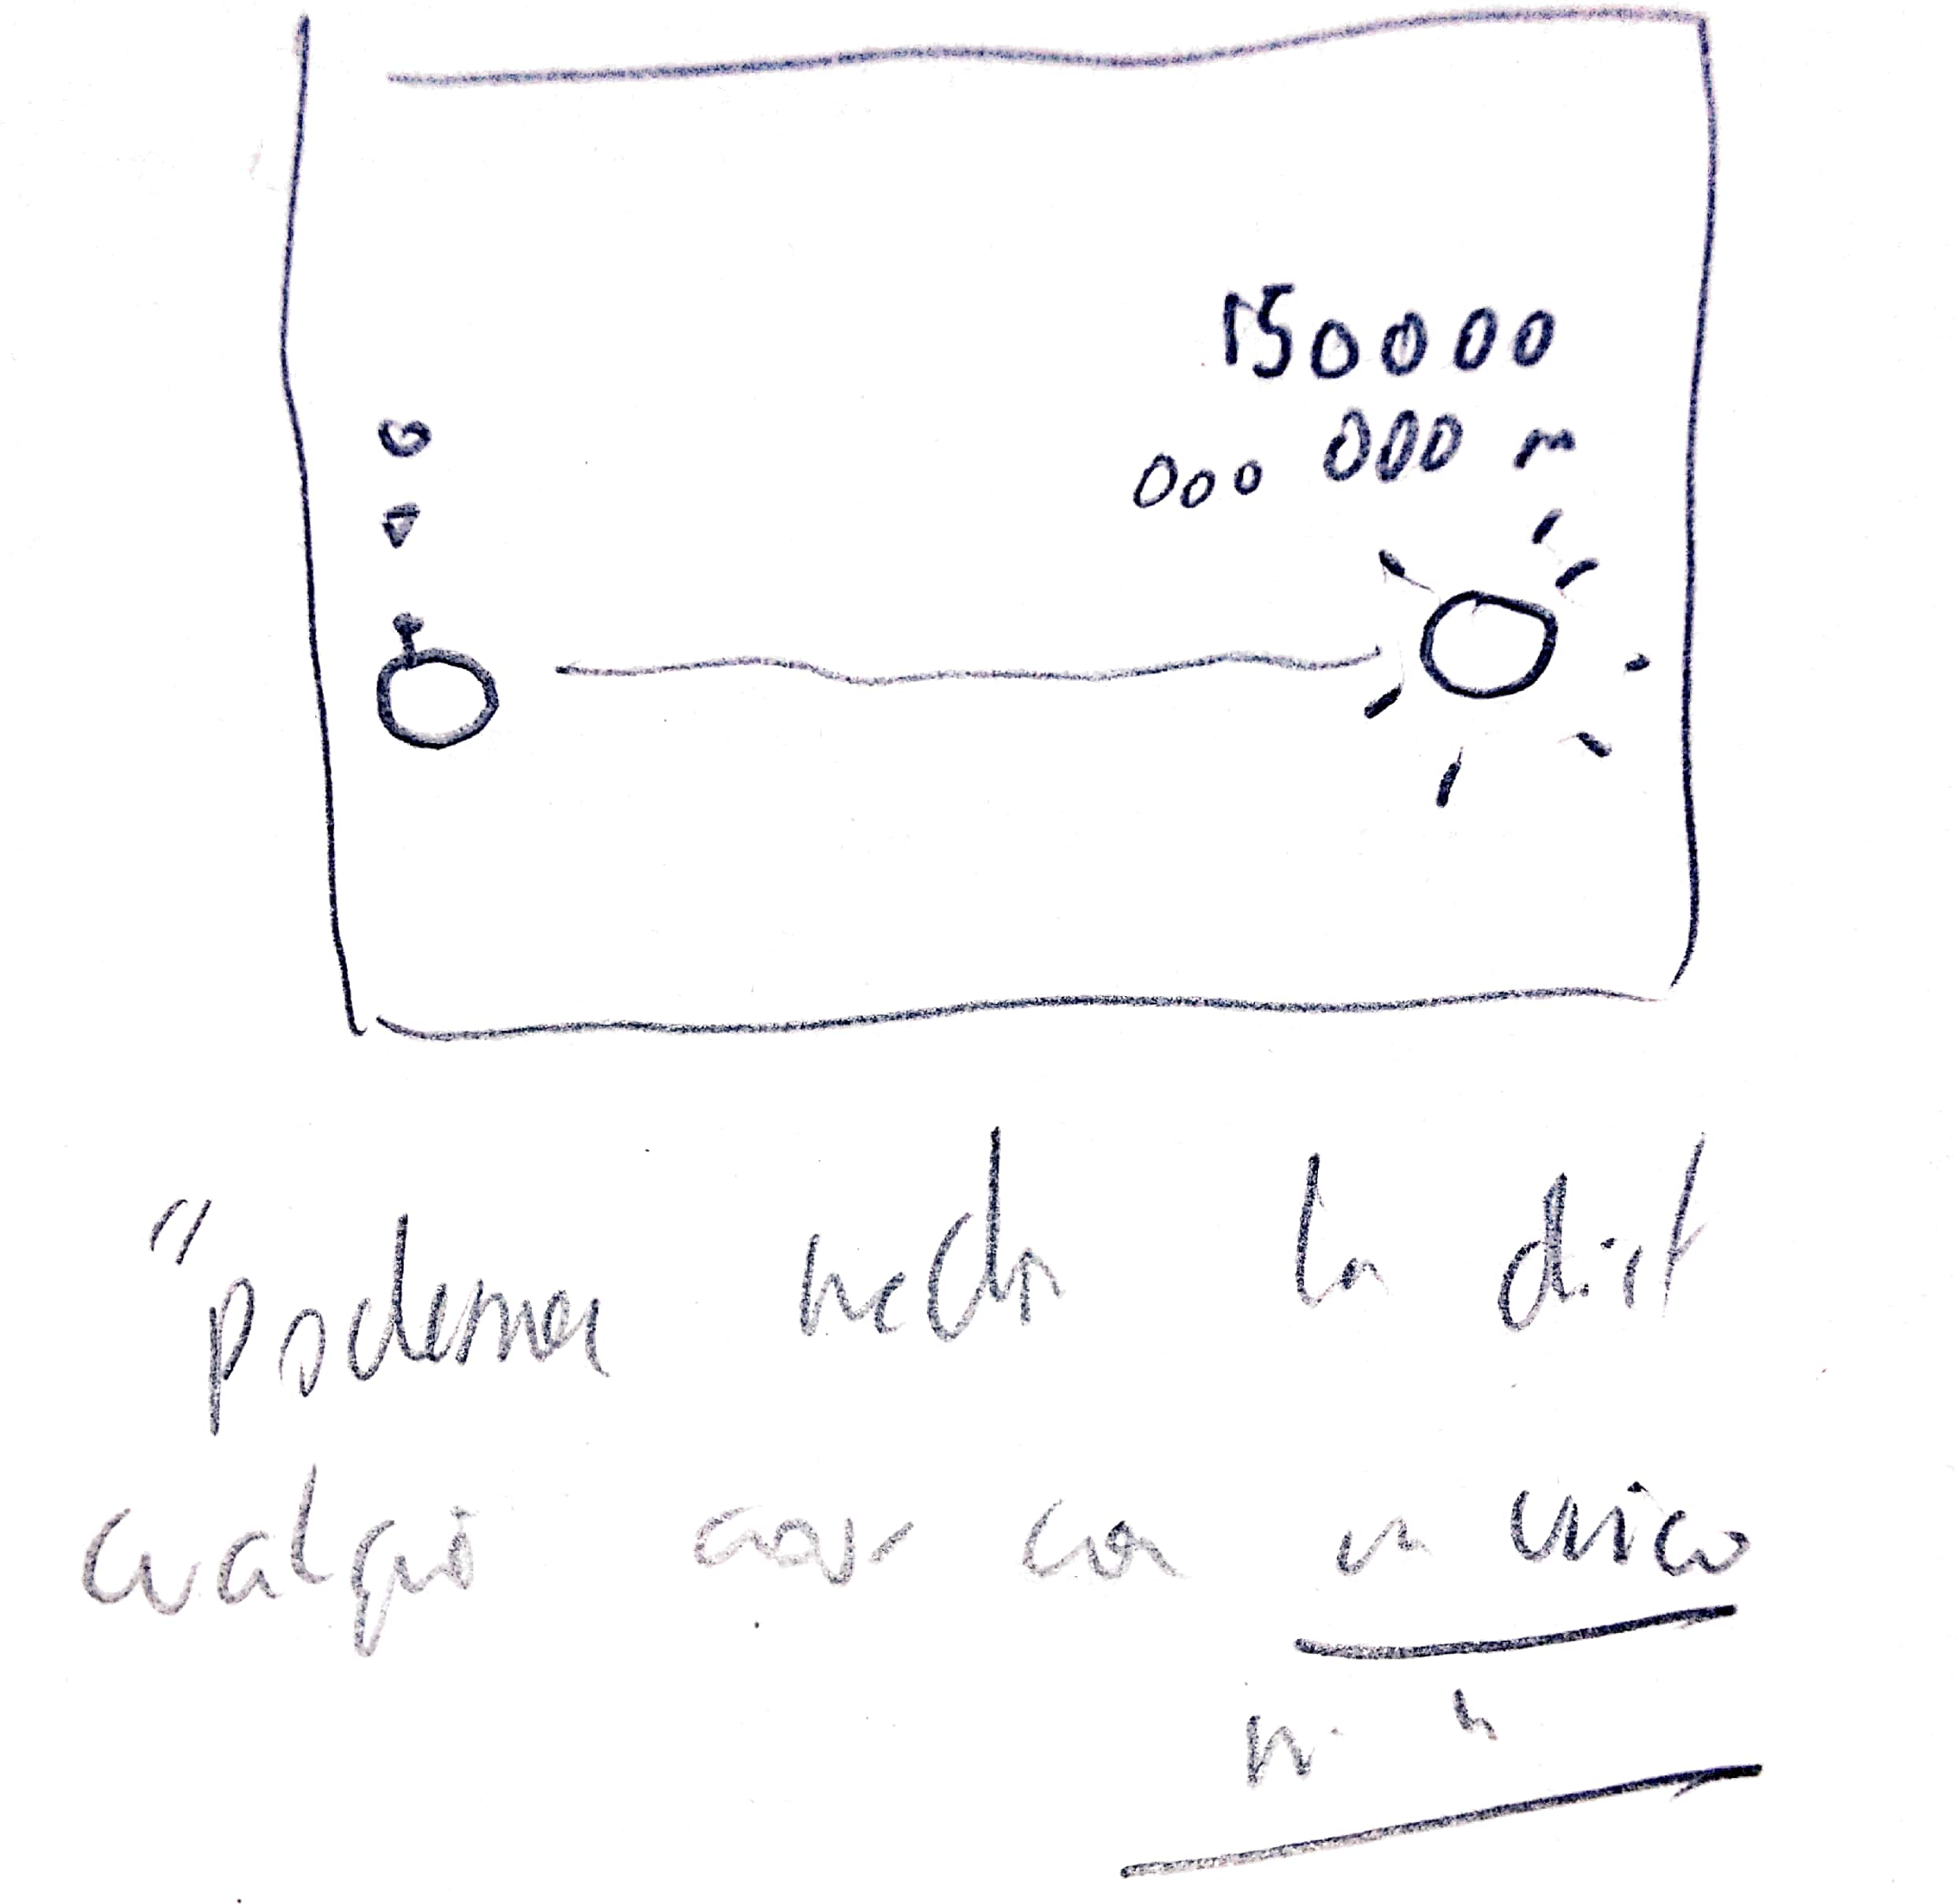 150000
000 000 m
"Podemos medir la dist
cualquier cosa con un único